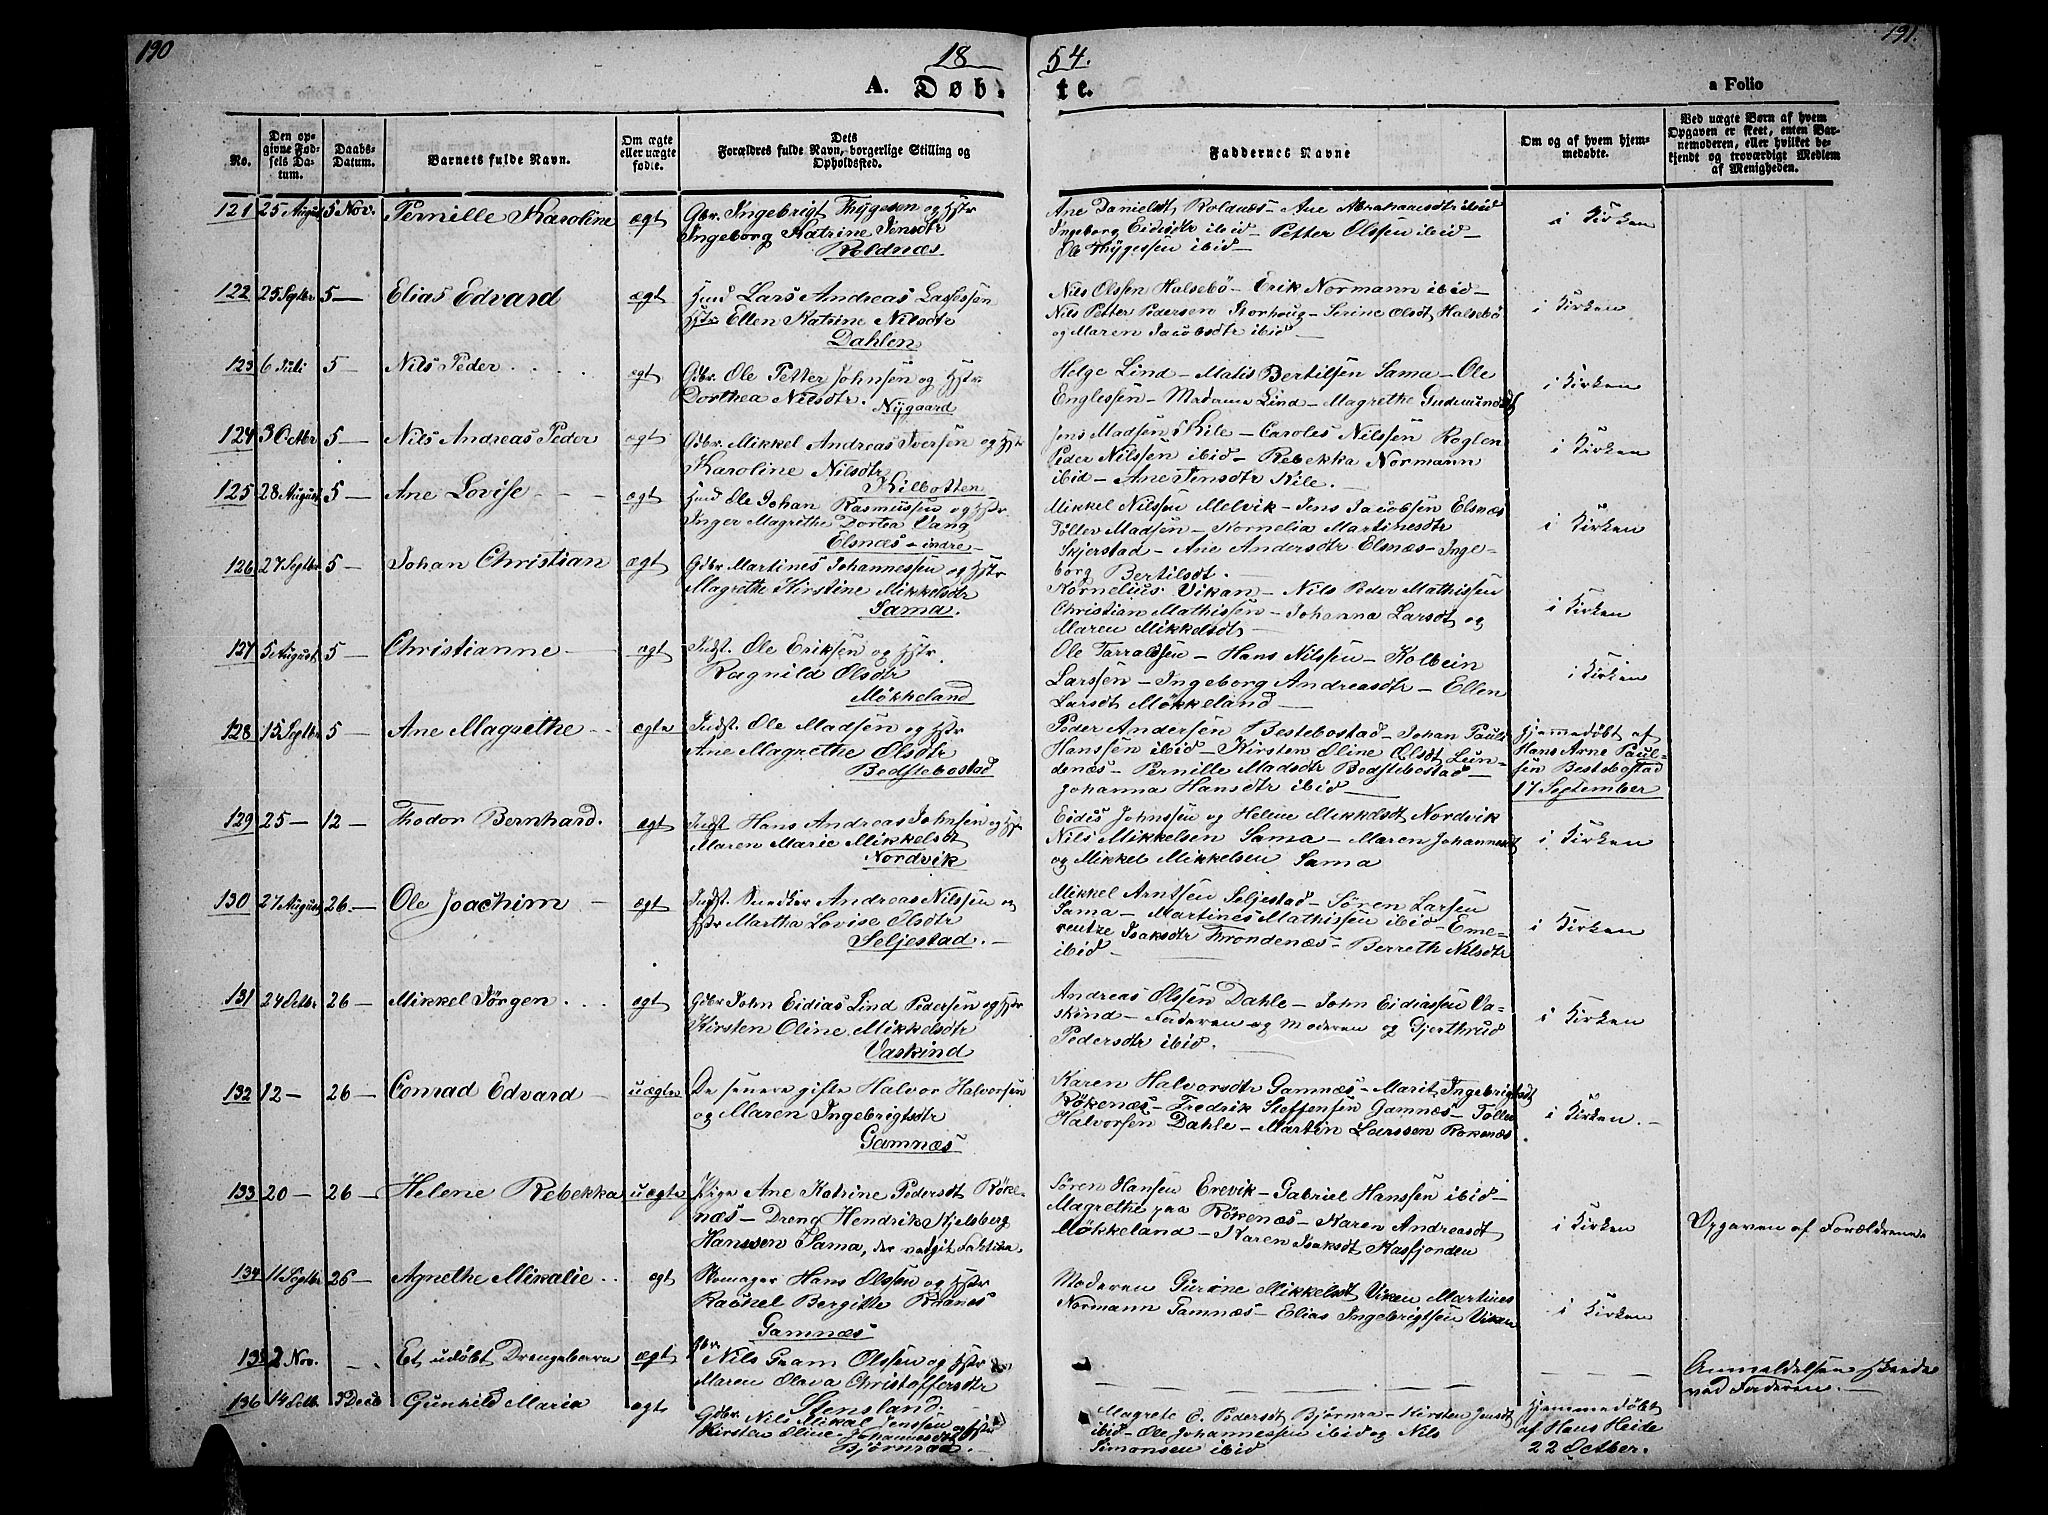 190
18
54.
191.
A. Døb.
te.
a Folio
No.
Den op-
givne Fød-
sels Da-
tum.
Daabs-
Datum.
Barnets fulde Navn.
Om ægte
eller uægte
fødte.
Dets
Forældres fulde Navn, borgerlige Stilling og
Opholdssted.
Faddernes Navne
Om og af hvem hjem-
medøbte.
Ved uægte Børn af hvem
Opgaven er skeet, enten Bar-
nemoderen, eller hvilket be-
kjendt og troværdige Medlem
af Menigheden.
121 25 August 5 Nov. Pernille Karoline ægt Gbr. Ingebrigt Thygesen og Hstr
Ingeborg Katrine Jensdtr
Roldnæs
Ane Danielsdt Roldnæs - Ane Abrahamsdtr ibid
Ingeborg Eidisdtr ibid - Petter Olssen ibid -
Ole Thygessen ibid -
i Kirken
122 25 Septbr 5 - Elias Edvard ægt Hmd Lars Andreas Lassessen
Hstr Ellen Katrine Nilsdtr
Dahlen
Nils Olssen Halsebö - Erik Normann ibid -
Nils Petter Pedersen Storhoug - Serine Olsdt Halsebö
og Maren Jacobsdtr ibid -
i Kirken
123 6 Juli 5 - Nils Peder ægt Gbr. Ole Petter Johnsen og Hstr.
Dorthea Nilsdtr. Nygaard
Helge Lind - Matis Bertilsen Sama - Ole
Englessen - Madame Lind - Magrethe Gudmundsdt
i Kirken
124 3 Octbr 5 - Nils Andreas Peder ægt Gbr. Mikkel Andreas Iversen og Hstr
Karoline Nilsdtr
Kilbotten
Jens Madsen Kile - Caroles Nilssen Roglen
Peder Nilssen ibid - Rebekka Normann
ibid - Ane Jensdtr Kile. -
i Kirken
125 28 August 5 - Ane Lovise - ægt Hmd Ole Johan Rasmussen og Hstr.
Inger Magrethe Dortea Vang
Elsnæs - indre -
Mikkel Nilssen Melvik - Jens Jacobsen Elsnæs
Töller Madsen - Kornelia Martinesdtr
Skjerstad - Ane Andersdtr Elsnæs - Inge-
borg Bertilsdt. -
i Kirken
126 27 Septbr 5 - Johan Christian ægt Gdbr Martines Johannessen og Hstr
Magrethe Kirstine Mikkelsdtr
Sama.
Kornelius Vikan - Nils Peder Mathissen
Christian Mathissen - Johanna Larsdt og
Maren Mikkelsdt -
i Kirken
127 5 August 5 - Christianne - ægt Indst. Ole Eriksen og Hstr.
Ragnild Olsdtr
Møkkeland
Ole Tarralssen - Hans Nilssen - Kolbein
Larssen - Ingeborg Andreasdtr - Ellen
Larsdt Møkkeland -
i Kirken
128 15 Septbr 5 - Ane Magrethe - ægte Indst. Ole Madsen og Hstr
Ane Magrethe Olsdtr
Bedstebostad
Peder Andersen Bestebostad - Johan Pauli
Hanssen ibid - Kirsten Oline Olsdt Lun-
denæs - Pernille Madsdtr Bedstebostad -
Johanna Hansdtr ibid -
hjemmedøbt af
Hans Arne Paul-
sen Bestebostad
17 September
129 25 - 12 - Thodor Bernhard. ægt Indst Hans Andreas Johnsen og Hstr
Maren Marie Mikkelsdt
Nordvik
Eidis Johnssen og Helene Mikkelsdt Nordvik
Nils Mikkelsen Sama - Maren Johannesdt
og Mikkel Mikkelsen Sama
i Kirken
130 27 August 26 - Ole Joachim - ægt Indst. Snedker Andreas Nilssen og
Hstr Martha Lovise Olsdtr
Seljestad. -
Mikkel Arntsen Seljestad - Sören Larsen
Sama - Martines Mathissen ibid - Eme-
rentze Isaksdtr Throndenæs - Berreth Nilsdtr
ibid -
i Kirken
131 24 Octbr 26 - Mikkel Jørgen ægt Gdbr John Eidias Lind Pedersen og Hstr
Kirsten Oline Mikkelsdtr
Vaskind
Andreas Olssen Dahle - John Eidiassen Va-
skind - Faderen og Moderen og Gjerthrud
Pedersdtr ibid.
i Kirken
132 12 - 26 - Conrad Edvard - uægte De senere gifte Halvor Halvorsen
og Maren Ingebrigtsdtr
Gamnæs
Karen Halvorsdtr Gamnæs - Marit Ingebrigtsdt
Rökenæs - Fredrik Steffensen Gamnæs - Töller
Halvorsen Dahle - Martin Larssen Rökenæs.
i Kirken. -
133 20 - 26 - Helene Rebekka uægte Pige Ane Katrine Pedersdt Röke-
næs - Dreng Hendrik Kjelsberg
Hanssen Sama, der vedgik Faktum.
Sören Hansen Erevik - Gabriel Hanssen ibid -
Magrethe paa Rökenæs - Karen Andreasdt
Møkkeland - Karen Isaksdt Kasfjorden
i Kirken
Opgaven af Forældrene.
134 11 Septbr 26 - Agnethe Mikalie ægt Skomager Hans Olssen og Hstr
Rachel Bergitte Röknes
Gamnæs
Moderen Gurine Mikkelsdt Viken Martines
Normann Gamnæs - Elias Ingebrigtsen Viken
i Kirken
135 2 Nov. - Et udöbt Drengebarn ægt Gbr.
Nils Gram Olssen og Hstr
Maren Olava Christoffersdtr
Stensland.
Anmeldelsen skeede
ved Faderen. -
136 14 Octb. 3 Decb Gunhild Maria ægt Gdbr. Nils Mikal Jenssen og Hstr
Kirsten Oline Johannesdtr
Bjørnraa. -
Magrete E. Pedersdt Bjørnra - Kirsten Jensdt
ibid - Ole Johannessen ibid og Nils
Simonsen ibid
Hjemmedøbt
af Hans Heide
22 October.